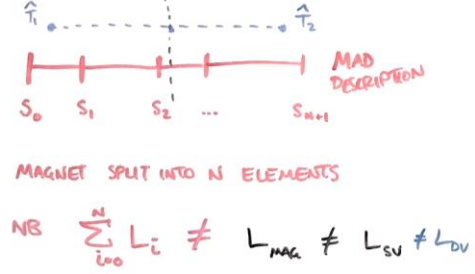 T̂₁ T̂₂
MAD
DESCRIPTION
S₀ S₁ S₂ ... Sₙ₊₁
MAGNET SPLIT INTO N ELEMENTS
NB ∑ᵢ₌₀ᴺ Lᵢ ≠ L_MAG ≠ L_SU ≠ L_DU